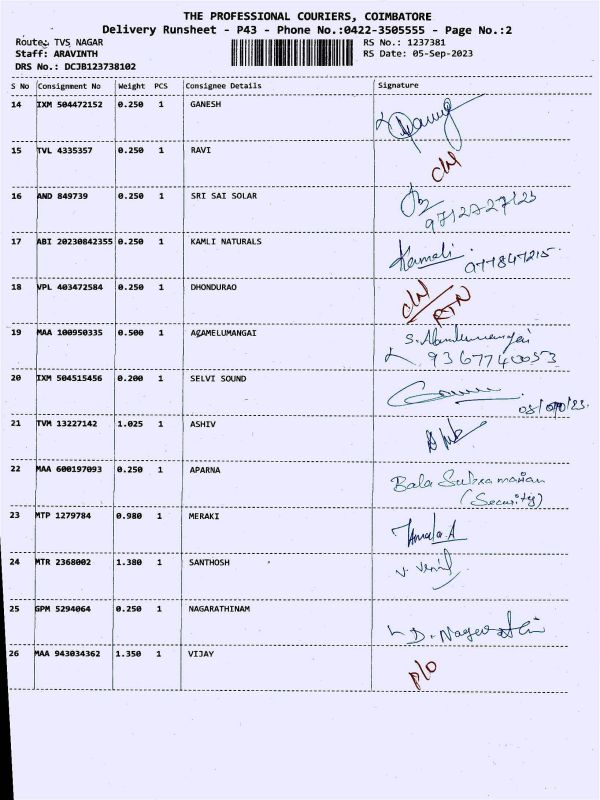 THE PROFESSIONAL COURIERS, COIMBATORE
Delivery Runsheet - P43 - Phone No.:0422-3505555 - Page No.:2
Route: TVS NAGAR RS No.: 1237381
Staff: ARAVINTH RS Date: 05-Sep-2023
DRS No.: DCJB123738102
S No Consignment No Weight PCS Consignee Details Signature
14 IXM 504472152 0.250 1 GANESH
15 TVL 4335357 0.250 1 RAVI
16 AND 849739 0.250 1 SRI SAI SOLAR
17 ABI 20230842355 0.250 1 KAMLI NATURALS Kamali
18 VPL 403472584 0.250 1 DHONDURAO
RTN
19 MAA 100950335 0.500 1 AZAMELUMANGAI
9367740053
20 IXM 504515456 0.200 1 SELVI SOUND
21 TVM 13227142 1.025 1 ASHIV
22 MAA 600197093 0.250 1 APARNA Bala Subramanian
(Security)
23 MTP 1279784 0.980 1 MERAKI
24 MTR 2368002 1.380 1 SANTHOSH
25 GPM 5294064 0.250 1 NAGARATHINAM
26 MAA 943034362 1.350 1 VIJAY